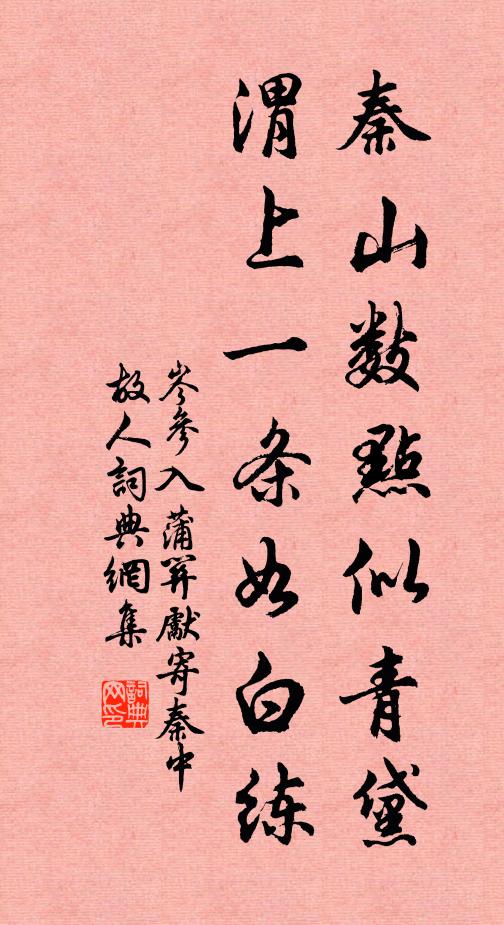 秦山数點似青黛
渭上一条如白练
岑參入蒲關獻寄秦中
故人詞典網集
詞典网印